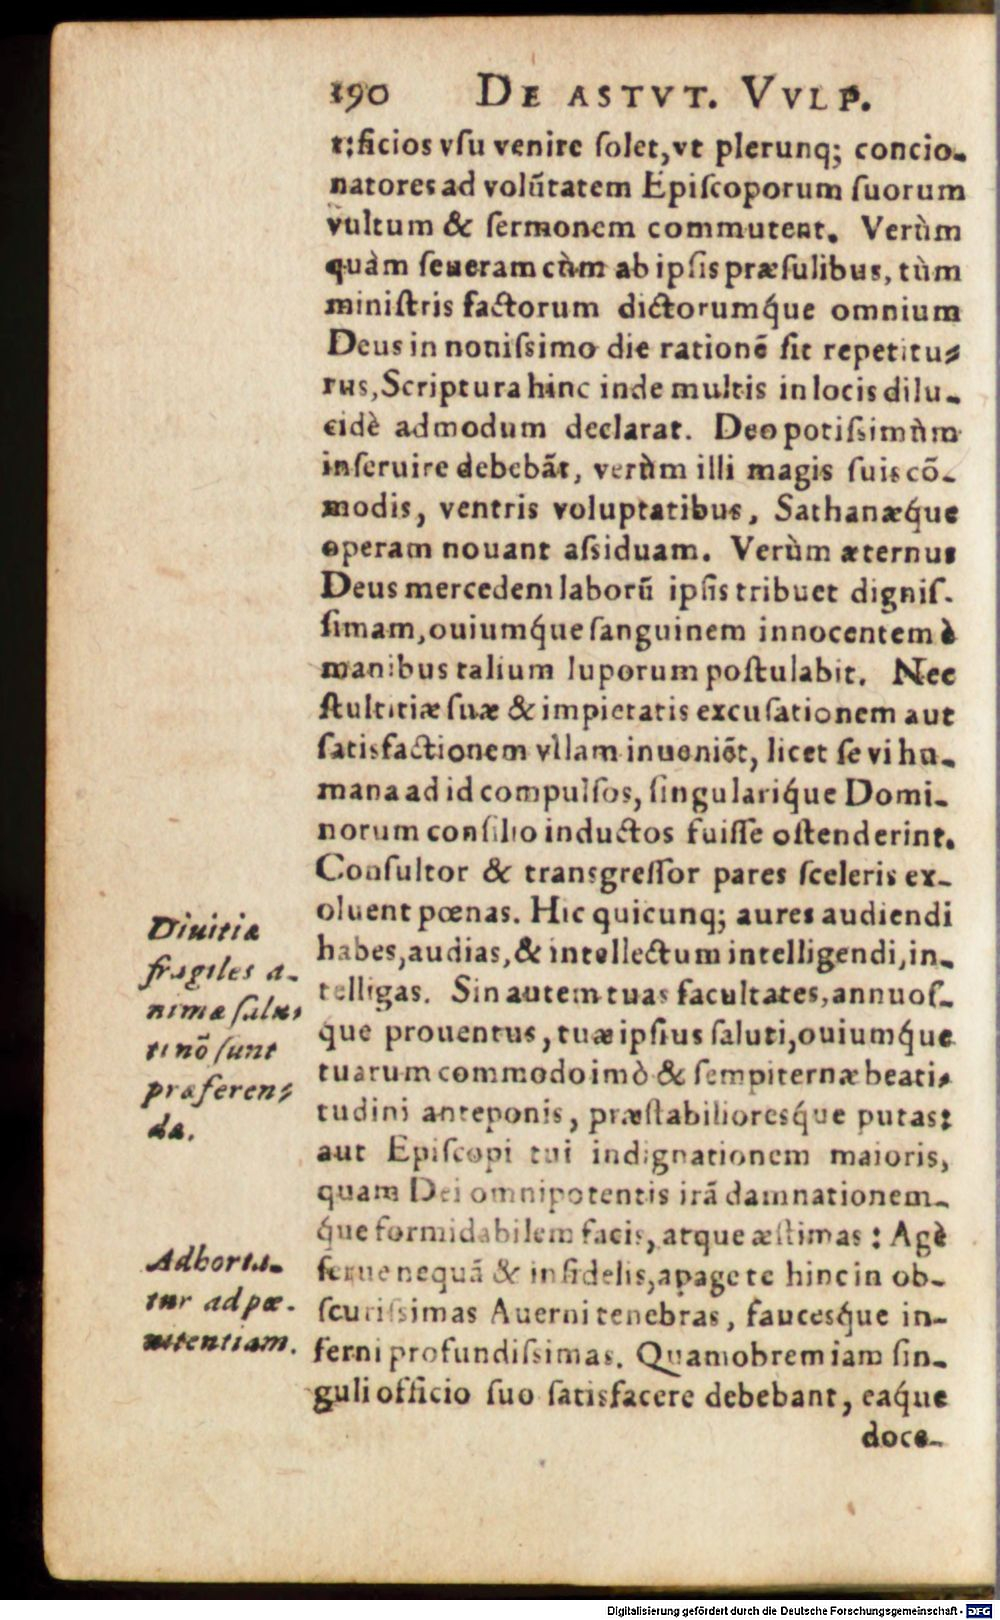 190 DE ASTVT. VVLP.
tificios vſu venire ſolet, vt plerunq; concio-
natores ad volūtatem Epiſcoporum ſuorum
vultum & ſermonem commutent. Verùm
quàm ſeueram cùm ab ipſis præſulibus, tùm
miniſtris factorum dictorumq́ue omnium
Deus in nouiſsimo die rationē ſit repetitu-
rus, Scriptura hinc inde multis in locis dilu-
cidè admodum declarat. Deo potiſsimùm
inſeruire debebāt, verùm illi magis ſuis cō-
modis, ventris voluptatibus, Sathanæq́ue
operam nouant aſsiduam. Verùm æternus
Deus mercedem laborū ipſis tribuet digniſ-
ſimam, ouiumq́ue ſanguinem innocentem è
manibus talium luporum poſtulabit. Nec
ſtultitiæ ſuæ & impietatis excuſationem aut
ſatisfactionem vllam inueniēt, licet ſe vi hu-
mana ad id compulſos, ſingulariq́ue Domi-
norum conſilio inductos fuiſſe oſtenderint.
Conſultor & transgreſſor pares ſceleris ex-
oluent pœnas. Hic quicunq; aures audiendi
habes, audias, & intellectum intelligendi, in-
telligas. Sin autem tuas facultates, annuoſ-
que prouentus, tuæ ipſius ſaluti, ouiumq́ue
tuarum commodo imò & ſempiternæ beati-
tudini anteponis, præſtabilioresq́ue putas:
aut Epiſcopi tui indignationem maioris,
quam Dei omnipotentis irā damnationem-
q́ue formidabilem facis, atque æſtimas: Agè
ſerue nequā & infidelis, apage te hinc in ob-
ſcuriſsimas Auerni tenebras, faucesq́ue in-
ferni profundiſsimas. Quamobrem iam ſin-
guli officio ſuo ſatisfacere debebant, eaq́ue
doce-
Diuitiæ
fragiles a-
nimæ ſalu-
ti nō ſunt
præferen-
da.
Adhorta-
tur ad pœ-
nitentiam.
Digitalisierung gefördert durch die Deutsche Forschungsgemeinschaft - DFG